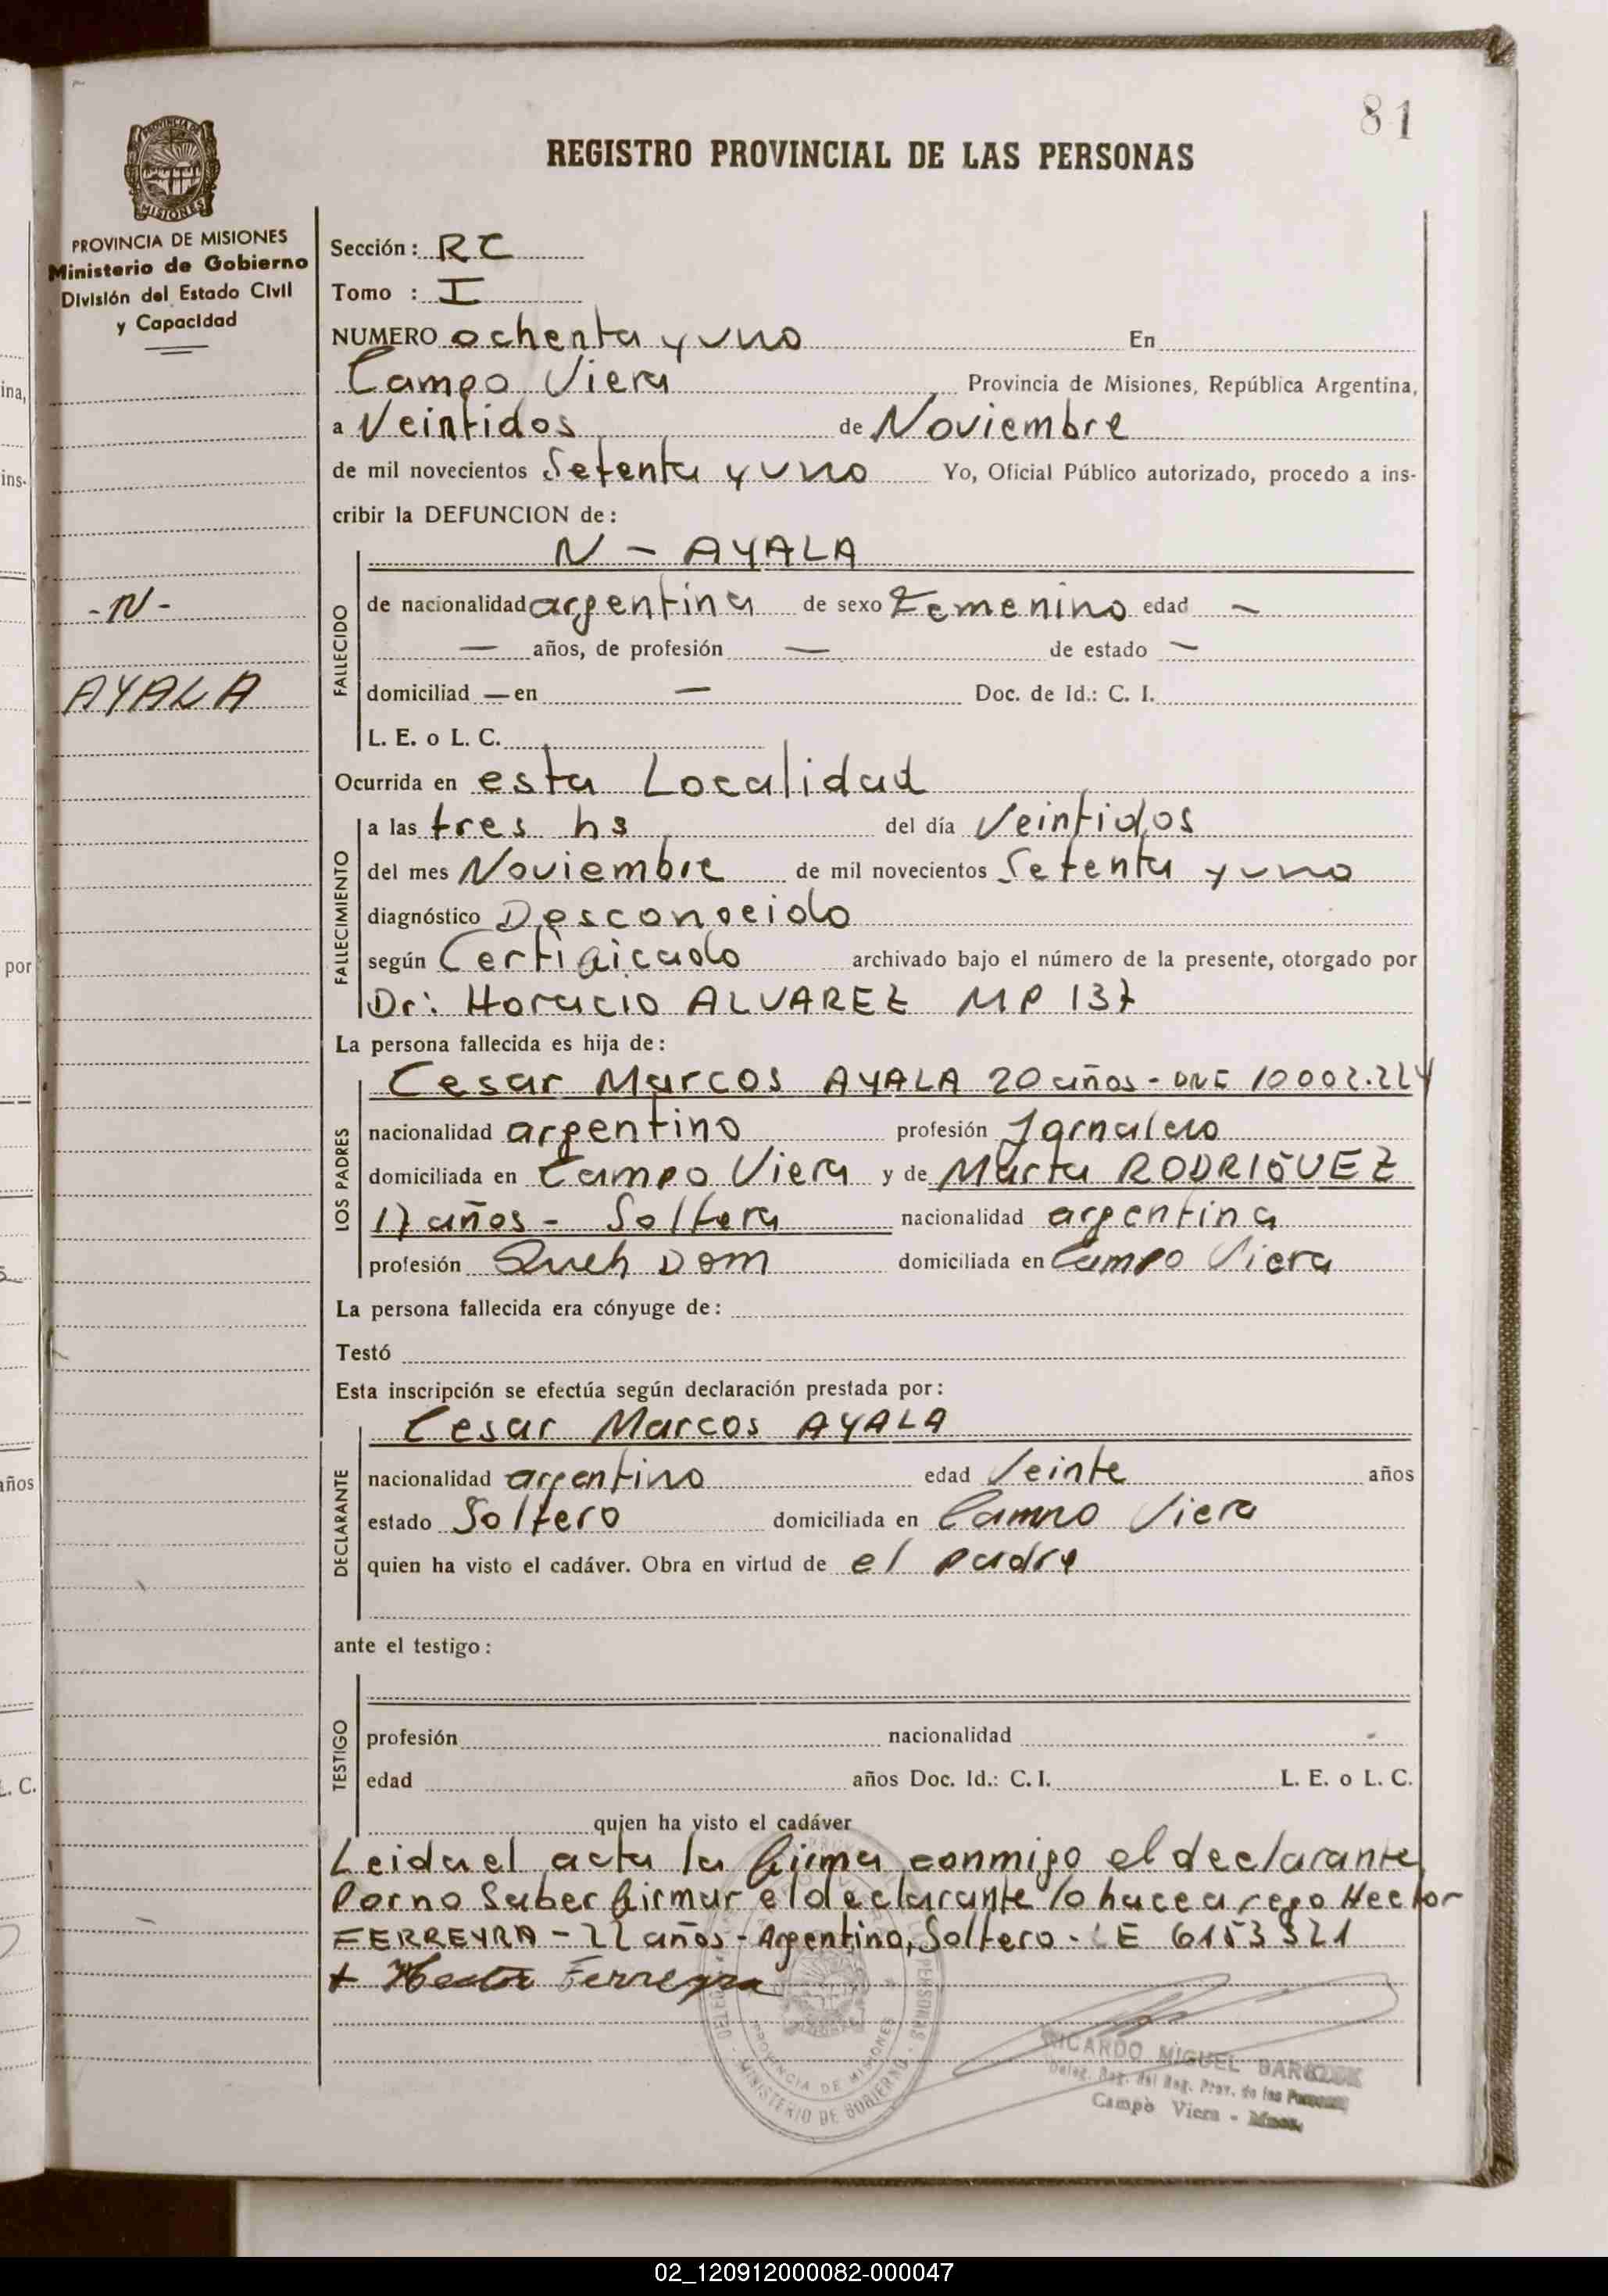 81
REGISTRO PROVINCIAL DE LAS PERSONAS
PROVINCIA DE
MISIONES
PROVINCIA DE MISIONES
Ministerio de Gobierno
División del Estado Civil
y Capacidad
-N-
AYALA
Sección: RC
Tomo : I
NUMERO ochenta y uno En
Campo Viera Provincia de Misiones, República Argentina,
a Veintidos de Noviembre
de mil novecientos Setenta y uno Yo, Oficial Público autorizado, procedo a ins-
cribir la DEFUNCION de:
N - AYALA
FALLECIDO
de nacionalidad argentina de sexo Femenino edad —
— años, de profesión — de estado —
domiciliad — en — Doc. de Id.: C. I.
L. E. o L. C.
Ocurrida en esta Localidad
FALLECIMIENTO
a las tres hs del día Veintidos
del mes Noviembre de mil novecientos Setenta y uno
diagnóstico Desconocido
según Certificado archivado bajo el número de la presente, otorgado por
Dr: Horacio ALVAREZ MP 137
La persona fallecida es hija de:
LOS PADRES
Cesar Marcos AYALA 20 años - DNI 10002.224
nacionalidad argentino profesión Jornalero
domiciliada en Campo Viera y de Marta RODRIGUEZ
17 años - Soltera nacionalidad argentina
profesión Queh Dom domiciliada en Campo Viera
La persona fallecida era cónyuge de:
Testó
Esta inscripción se efectúa según declaración prestada por:
DECLARANTE
Cesar Marcos AYALA
nacionalidad argentino edad Veinte años
estado Soltero domiciliada en Campo Viera
quien ha visto el cadáver. Obra en virtud de el padre
ante el testigo:
TESTIGO
profesión nacionalidad
edad años Doc. Id.: C. I. L. E. o L. C.
quien ha visto el cadáver
Leida el acta la firma conmigo el declarante
Por no Saber firmar el declarante lo hace a rego Hector
FERREYRA - 22 años - Argentino, Soltero - LE 6153321
+ Hector Ferreyra
PROVINCIA DE MISIONES
MINISTERIO DE GOBIERNO
RICARDO MIGUEL
Deleg. Reg. del Reg. Prov. de las Personas
Campo Viera - Mnes.
ina,
ins-
por
años
L. C.
02_120912000082-000047